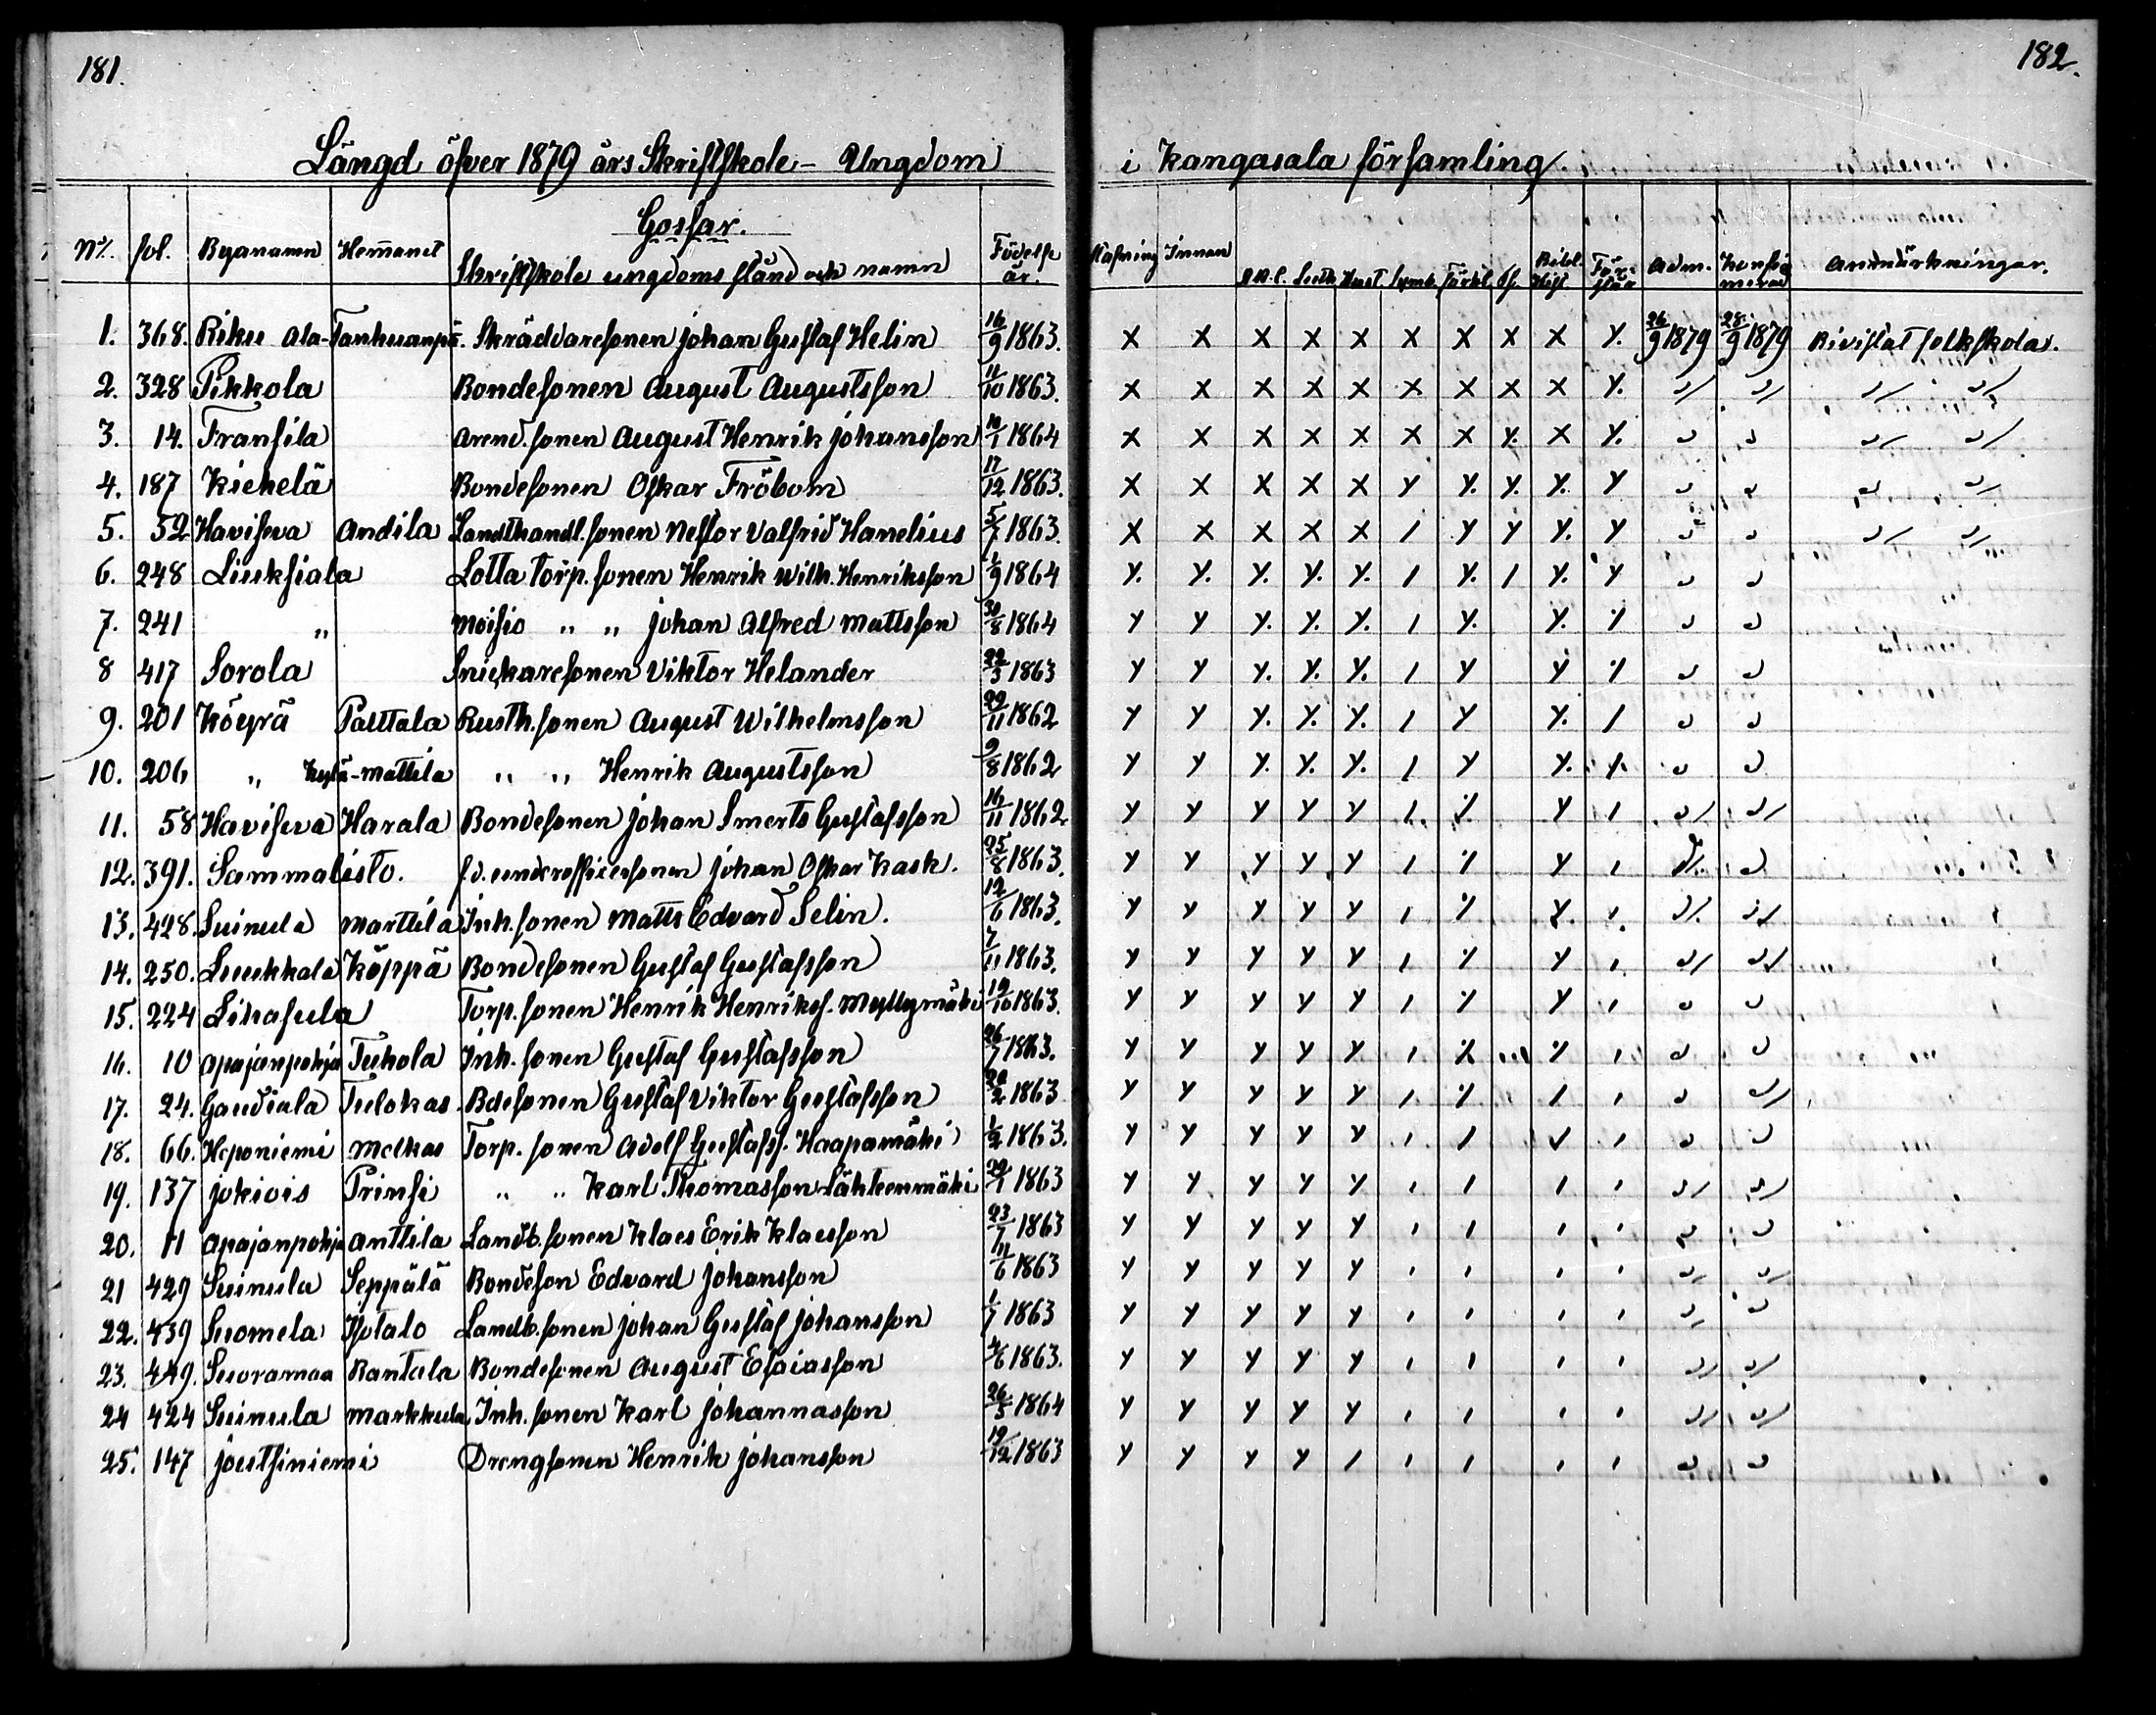 181.
182.
Längd öfver 1879 års Skriftskole-Ungdom i Kangasala församling
Gossar.
No. fol. Byanamn Hemanet Skriftskole ungdoms stånd och namn Födelse år. Stafning Innan A.B.C. Luth. Hust. Symb. Förkl. Ps. Bibl. Hist. För- står Adm. Konfir merad Anmärkningar.
1. 368. Riku Ala-Tankuanpä. Skräddaresonen Johan Gustaf Helin 16/9 1863. x x x x x x x x x y. 26/9 1879 28/9 1879 Bivistat folkskola.
2. 328 Pikkola Bondesonen August Augustsson 11/10 1863. x x x x x x x x x y. " " " "
3. 14. Fransila Arend.sonen August Henrik Johansson 10/1 1864 x x x x x x x y. x y. " " " "
4. 187 Kiekelä Bondesonen Oskar Fröbom 17/12 1863. x x x x x y y. y. y. y " " " "
5. 52 Haviseva Andila Landthandl.sonen Nestor Valfrid Hanelius 5/7 1863. x x x x x / y y y. y " " " "
6. 248 Liuksiala Lotta torp.sonen Henrik Wilh. Henriksson 1/9 1864 y. y. y. y. y. / y. / y. y " "
7. 241 " Moisio " " Johan Alfred Mattsson 30/8 1864 y y y. y. y. / y. y. y " "
8 417 Sorola Snickaresonen Viktor Helander 22/3 1863 y y y. y. y. / y y y " "
9. 201 Köyrä Pauttala Rusth.sonen August Wilhelmsson 29/11 1862 y y y. y. y. / y y. / " "
10. 206 " Kylä-Mattila " " Henrik Augustsson 9/8 1862 y y y. y. y. / y y. y. " "
11. 58 Haviseva Harala Bondesonen Johan Smerts Gustafsson 16/11 1862 y y y y y / y y / " "
12. 391. Sammalisto. f.d. underofficersonen Johan Oskar Kask. 25/8 1863. y y y y y / y y / " "
13. 428. Suinula Marttila Inh.sonen Matts Edvard Selin. 12/6 1863. y y y y y / y y. / " "
14. 250. Liuukkala Köppä Bondesonen Gustaf Gustafsson 7/11 1863. y y y y y / y y / " "
15. 224 Lihasula Torp.sonen Henrik Henriksf. Myllymäki 19/10 1863. y y y y y / y y / " "
16. 10 Apajanpohja Tuhola Inh.sonen Gustaf Gustafsson 26/7 1863. y y y y y / y y / " "
17. 24. Gaudiala Tulokas Bdesonen Gustaf Viktor Gustafsson 22/2 1863 y y y y y / y / / " "
18. 66. Heponiemi Melkas Torp.sonen Adolf Gustafsf. Haapamäki 1/2 1863. y y y y y / / y / " "
19. 137 Jokiois Prinsi " " Karl Thomasson Lähteenmäki 29/1 1863 y y y y y / / / / " "
20. 11 Apajanpohja Anttila Landb.sonen Klaes Erik Klaesson 23/7 1863 y y y y y / / / / " "
21 429 Suinula Seppälä Bondeson Edvard Johansson 11/6 1863 y y y y y / / / / " "
22. 439 Suomela Isotalo Landb.sonen Johan Gustaf Johansson 1/7 1863 y y y y y / / / / " "
23. 449. Suoramaa Rantala Bondesonen August Esaiasson 4/6 1863. y y y y y / / / / " "
24 424 Suinula Markkula Inh.sonen Karl Johannasson 26/3 1864 y y y y y / / / / " "
25. 147 Joutsiniemi Drengsonen Henrik Johansson 19/12 1863 y y y y / / / / / " "